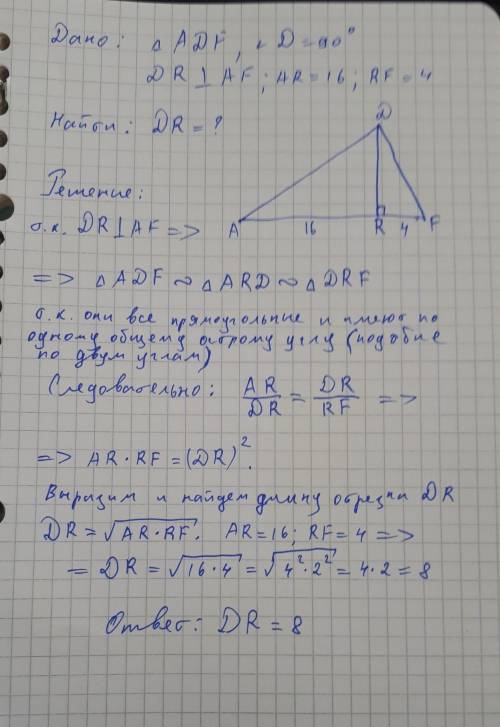 Дано: △ADF, ∠D=90°
DR⊥AF; AR=16; RF=4
Найти: DR=?
D
Решение:
т.к. DR⊥AF =>
A 16 R 4 F
=> △ADF ∾ △ARD ∾ △DRF
т.к. они все прямоугольные и имеют по
одному общему острому углу (подобие
по двум углам)
Следовательно: AR/DR = DR/RF =>
=> AR·RF=(DR)².
Выразим и найдем длину отрезка DR
DR=√AR·RF. AR=16; RF=4 =>
= DR=√16·4=√4²·2²=4·2=8
Ответ: DR=8